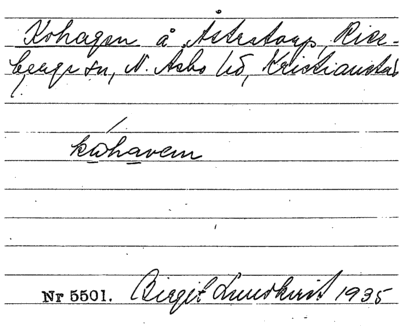 Kohagen å Åstrotorps, Rise-
berga sn, N. Åsbo hd, Kristianstad
kohavem
Nr 5501. Birgit Lundkvist 1935